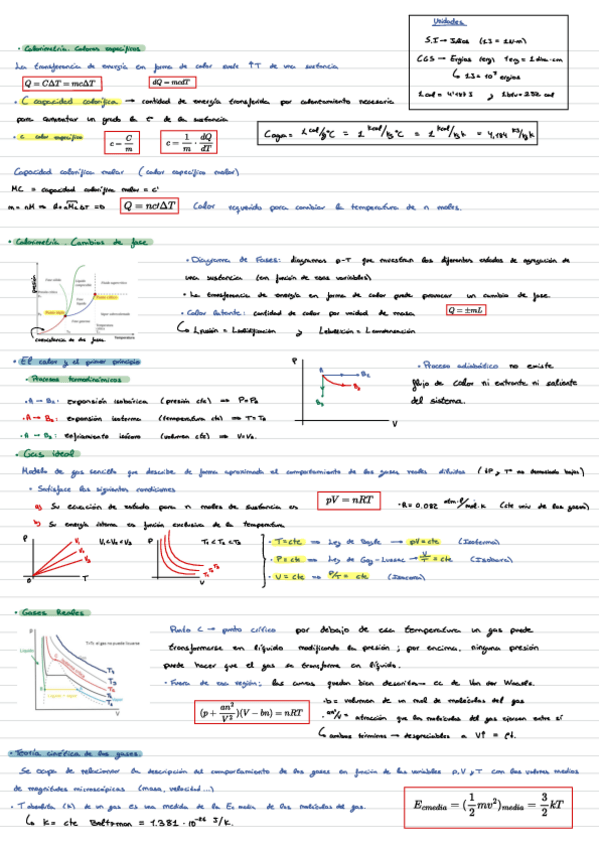 Unidades
S.I → Julios (1J = 1N·m)
CGS → Ergios (erg) 1erg = 1 dina·cm
↳ 1J = 10⁷ ergios
1 cal = 4'184 J y 1 btu = 252 cal
• Calorimetría. Calores específicos
La transferencia de energía en forma de calor suele ↑T de una sustancia
Q = CΔT = mcΔT
dQ = mcdT
• C capacidad calorífica → cantidad de energía transferida por calentamiento necesaria
para aumentar un grado la T de la sustancia
• c calor específico
c = C/m
c = 1/m · dQ/dT
Cagua = 1 cal/g°C = 1 kcal/kg°C = 1 kcal/kg K = 4,184 kJ/kg K
Capacidad calorífica molar (calor específico molar)
MC = capacidad calorífica molar = c'
Q = nc'ΔT
Calor requerido para cambiar la temperatura de n moles.
• Calorimetría. Cambios de fase
presión
Temperatura
coexistencia de dos fases
• Diagrama de Fases: diagramas p-T que muestran los diferentes estados de agregación de
una sustancia (en función de esas variables)
• La transferencia de energía en forma de calor puede provocar un cambio de fase
• Calor latente: cantidad de calor por unidad de masa
Q = ±mL
↳ Lfusión = Lsolidificación y Lebullición = Lcondensación
• El calor y el primer principio
• Procesos termodinámicos
• A → B₁: expansión isobárica (presión cte) ⇒ P=P₀
• A → B₂: expansión isoterma (temperatura cte) ⇒ T=T₀
• A → B₃: enfriamiento isócoro (volumen cte) ⇒ V=V₀.
P
A
V
• Proceso adiabático no existe
flujo de calor ni entrante ni saliente
del sistema.
• Gas ideal
Modelo de gas sencillo que describe de forma aproximada el comportamiento de los gases reales diluidos
• Satisface las siguientes condiciones
a) Su ecuación de estado para n moles de sustancia es
pV = nRT
• R = 0.082 atm·l/mol·K (cte univ de los gases)
b) Su energía interna es función exclusiva de la temperatura
P
V₁
V₂
V₃
V₁<V₂<V₃
0
T
P
T₁<T₂<T₃
V
• T=cte ⇒ Ley de Boyle → pV=cte (Isoterma)
• P=cte ⇒ Ley de Gay-Lussac → V/T = cte (Isobara)
• V=cte ⇒ P/T = cte (Isocora)
• Gases Reales
P
Líquido
V
Punto C → punto crítico por debajo de esa temperatura un gas puede
transformarse en líquido modificando la presión; por encima, ninguna presión
puede hacer que el gas se transforme en líquido.
• Fuera de esa región: las curvas quedan bien descritas → ec de Van der Waals.
(p + an²/V²)(V − bn) = nRT
• b = volumen de un mol de moléculas del gas
• an²/V² = atracción que las moléculas del gas ejercen entre sí
↳ ambos términos → despreciables a V↑ = ρ↓.
• Teoría cinética de los gases.
Se ocupa de relacionar la descripción del comportamiento de los gases en función de las variables p,V y T con los valores medios
de magnitudes microscópicas (masa, velocidad...)
• T absoluta (K) de un gas es una medida de la Ec media de las moléculas del gas.
↳ K = cte Boltzman =
E_cmedia = (½mv²)_media = 3/2 kT